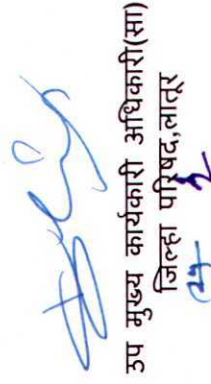 उप मुख्य कार्यकारी अधिकारी(सा)
जिल्हा परिषद,लातूर